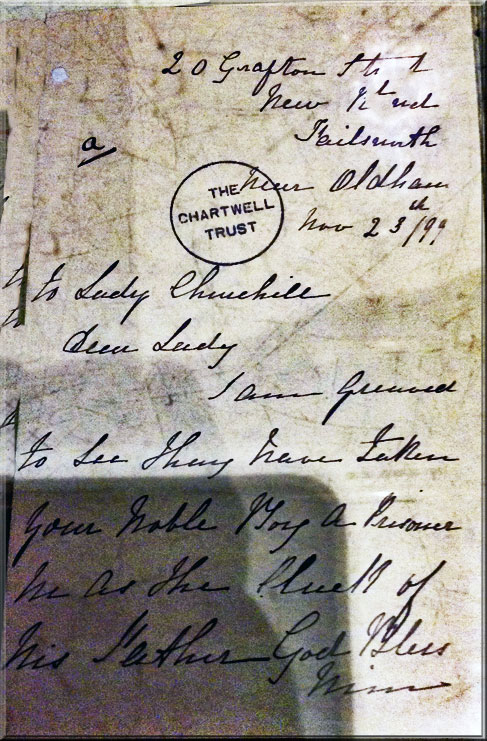 20 Grafton Str t
New
Failsworth
a
Near Oldham
THE
CHARTWELL
TRUST
Nov 23th/99
to Lady Churchill
Dear Lady
I am Greaved
to See Thay Have Taken
your Noble Boy A Prisoner
He As the Pluck of
His Father God Bless
Him